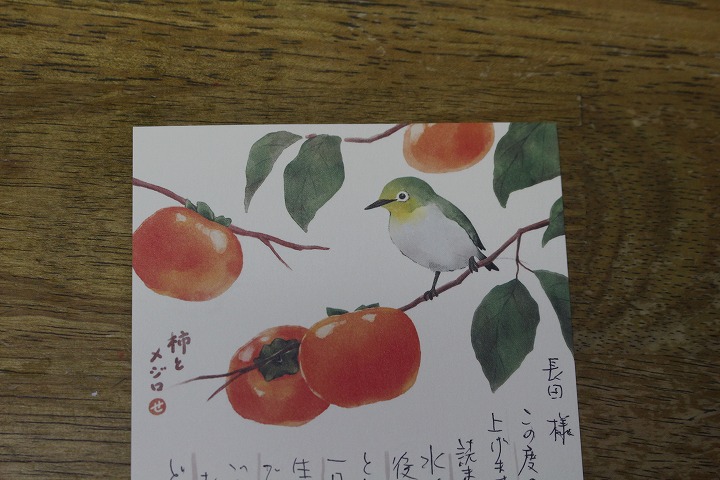 柿と
メジロ
せ
長田 様
この度
上げま
読ま
水
後
と
一
生